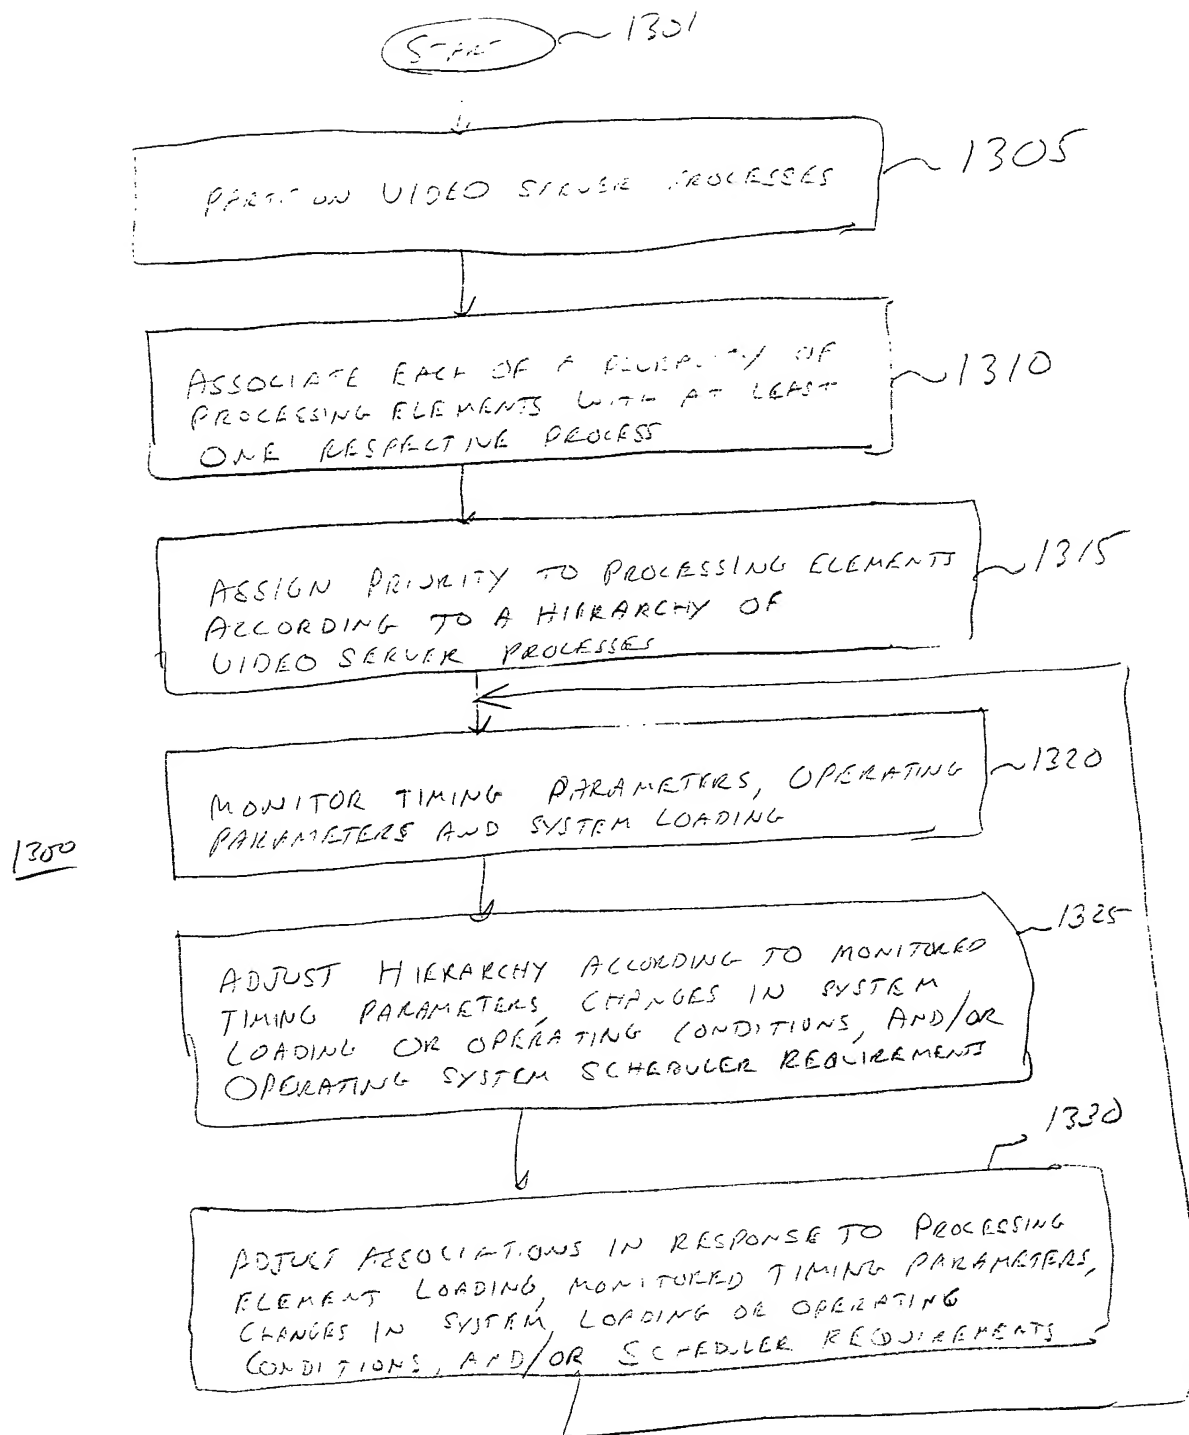 START
1301
PARTITION VIDEO SERVER PROCESSES
1305
ASSOCIATE EACH OF A PLURALITY OF
PROCESSING ELEMENTS WITH AT LEAST
ONE RESPECTIVE PROCESS
1310
ASSIGN PRIORITY TO PROCESSING ELEMENTS
ACCORDING TO A HIERARCHY OF
VIDEO SERVER PROCESSES
1315
MONITOR TIMING PARAMETERS, OPERATING
PARAMETERS AND SYSTEM LOADING
1320
1300
ADJUST HIERARCHY ACCORDING TO MONITORED
TIMING PARAMETERS, CHANGES IN SYSTEM
LOADING OR OPERATING CONDITIONS, AND/OR
OPERATING SYSTEM SCHEDULER REQUIREMENTS
1325
1330
ADJUST ASSOCIATIONS IN RESPONSE TO PROCESSING
ELEMENT LOADING, MONITORED TIMING PARAMETERS,
CHANGES IN SYSTEM LOADING OR OPERATING
CONDITIONS, AND/OR SCHEDULER REQUIREMENTS